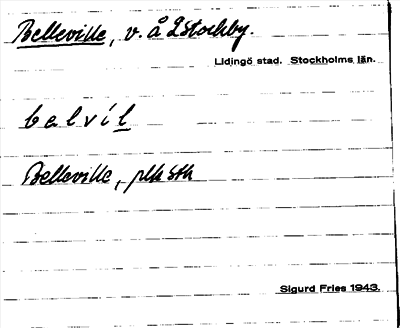 Belleville, v. å Lstockby.
Lidingö stad. Stockholms län.
belvíl
Belleville,
Sigurd Fries 1943.